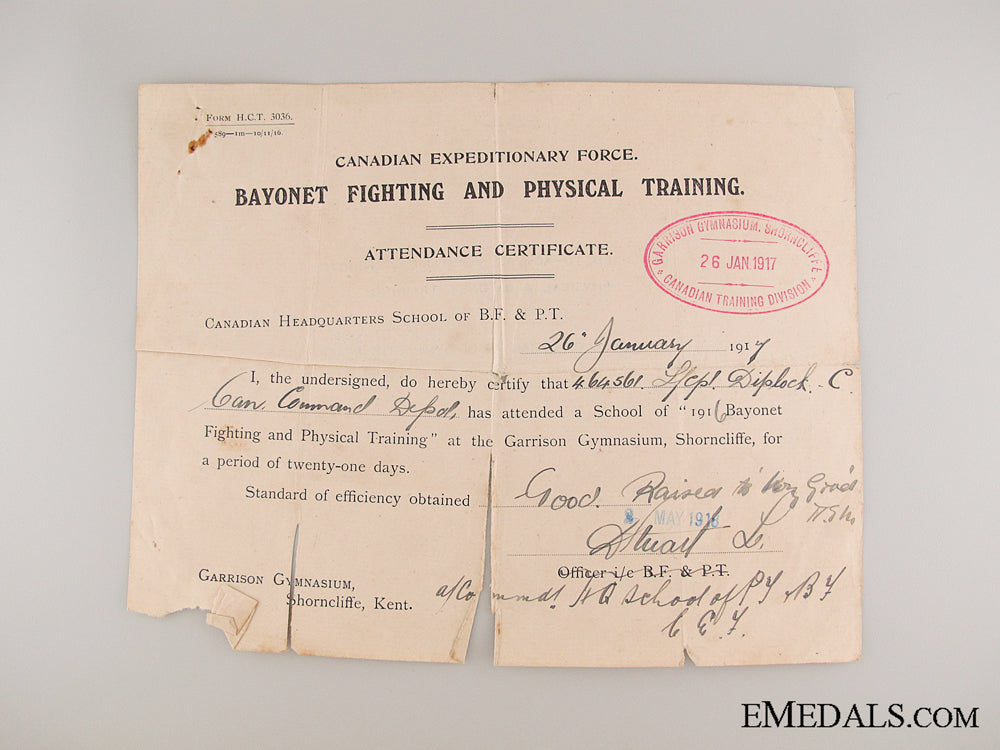 FORM H.C.T. 3036.
589—1m—10/11/16.
CANADIAN EXPEDITIONARY FORCE.
BAYONET FIGHTING AND PHYSICAL TRAINING.
ATTENDANCE CERTIFICATE.
GARRISON GYMNASIUM, SHORNCLIFFE
26 JAN. 1917
CANADIAN TRAINING DIVISION
CANADIAN HEADQUARTERS SCHOOL OF B.F. & P.T.
26" January 1917
I, the undersigned, do hereby certify that 464561. L/Cpl. Diplock. C
Can. Command Depot, has attended a School of "1916 Bayonet
Fighting and Physical Training" at the Garrison Gymnasium, Shorncliffe, for
a period of twenty-one days.
Standard of efficiency obtained Good. Raised to Very Good
MAY 1918
Stuart L.
Officer i/c B.F. & P.T.
GARRISON GYMNASIUM,
Shorncliffe, Kent.
a/Commdt. HQ School of PT & BF
C E F.
EMEDALS.COM